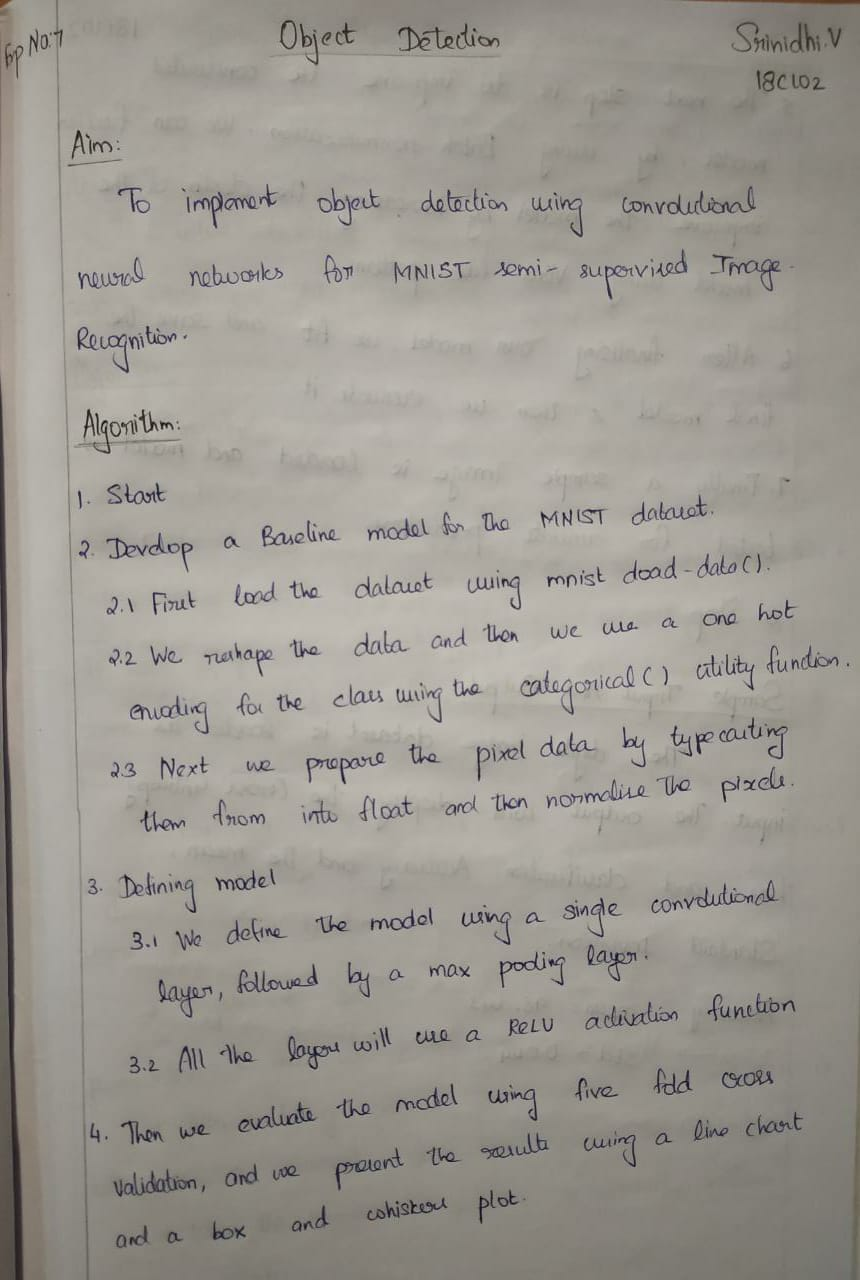 Exp No:7
Object Detection
Srinidhi.V
18CL02
Aim:
To implement object detection using convolutional
neural networks for MNIST semi-supervised Image
Recognition.
Algorithm:
1. Start
2. Develop a Baseline model for the MNIST dataset.
2.1 First load the dataset using mnist load-data().
2.2 We reshape the data and then we use a one hot
encoding for the class using the categorical() utility function.
2.3 Next we prepare the pixel data by typecasting
them from into float and then normalise the pixels.
3. Defining model
3.1 We define the model using a single convolutional
layer, followed by a max pooling layer.
3.2 All the layers will use a RELU activation function
4. Then we evaluate the model using five fold cross
validation, and we present the results using a line chart
and a box and whiskers plot.